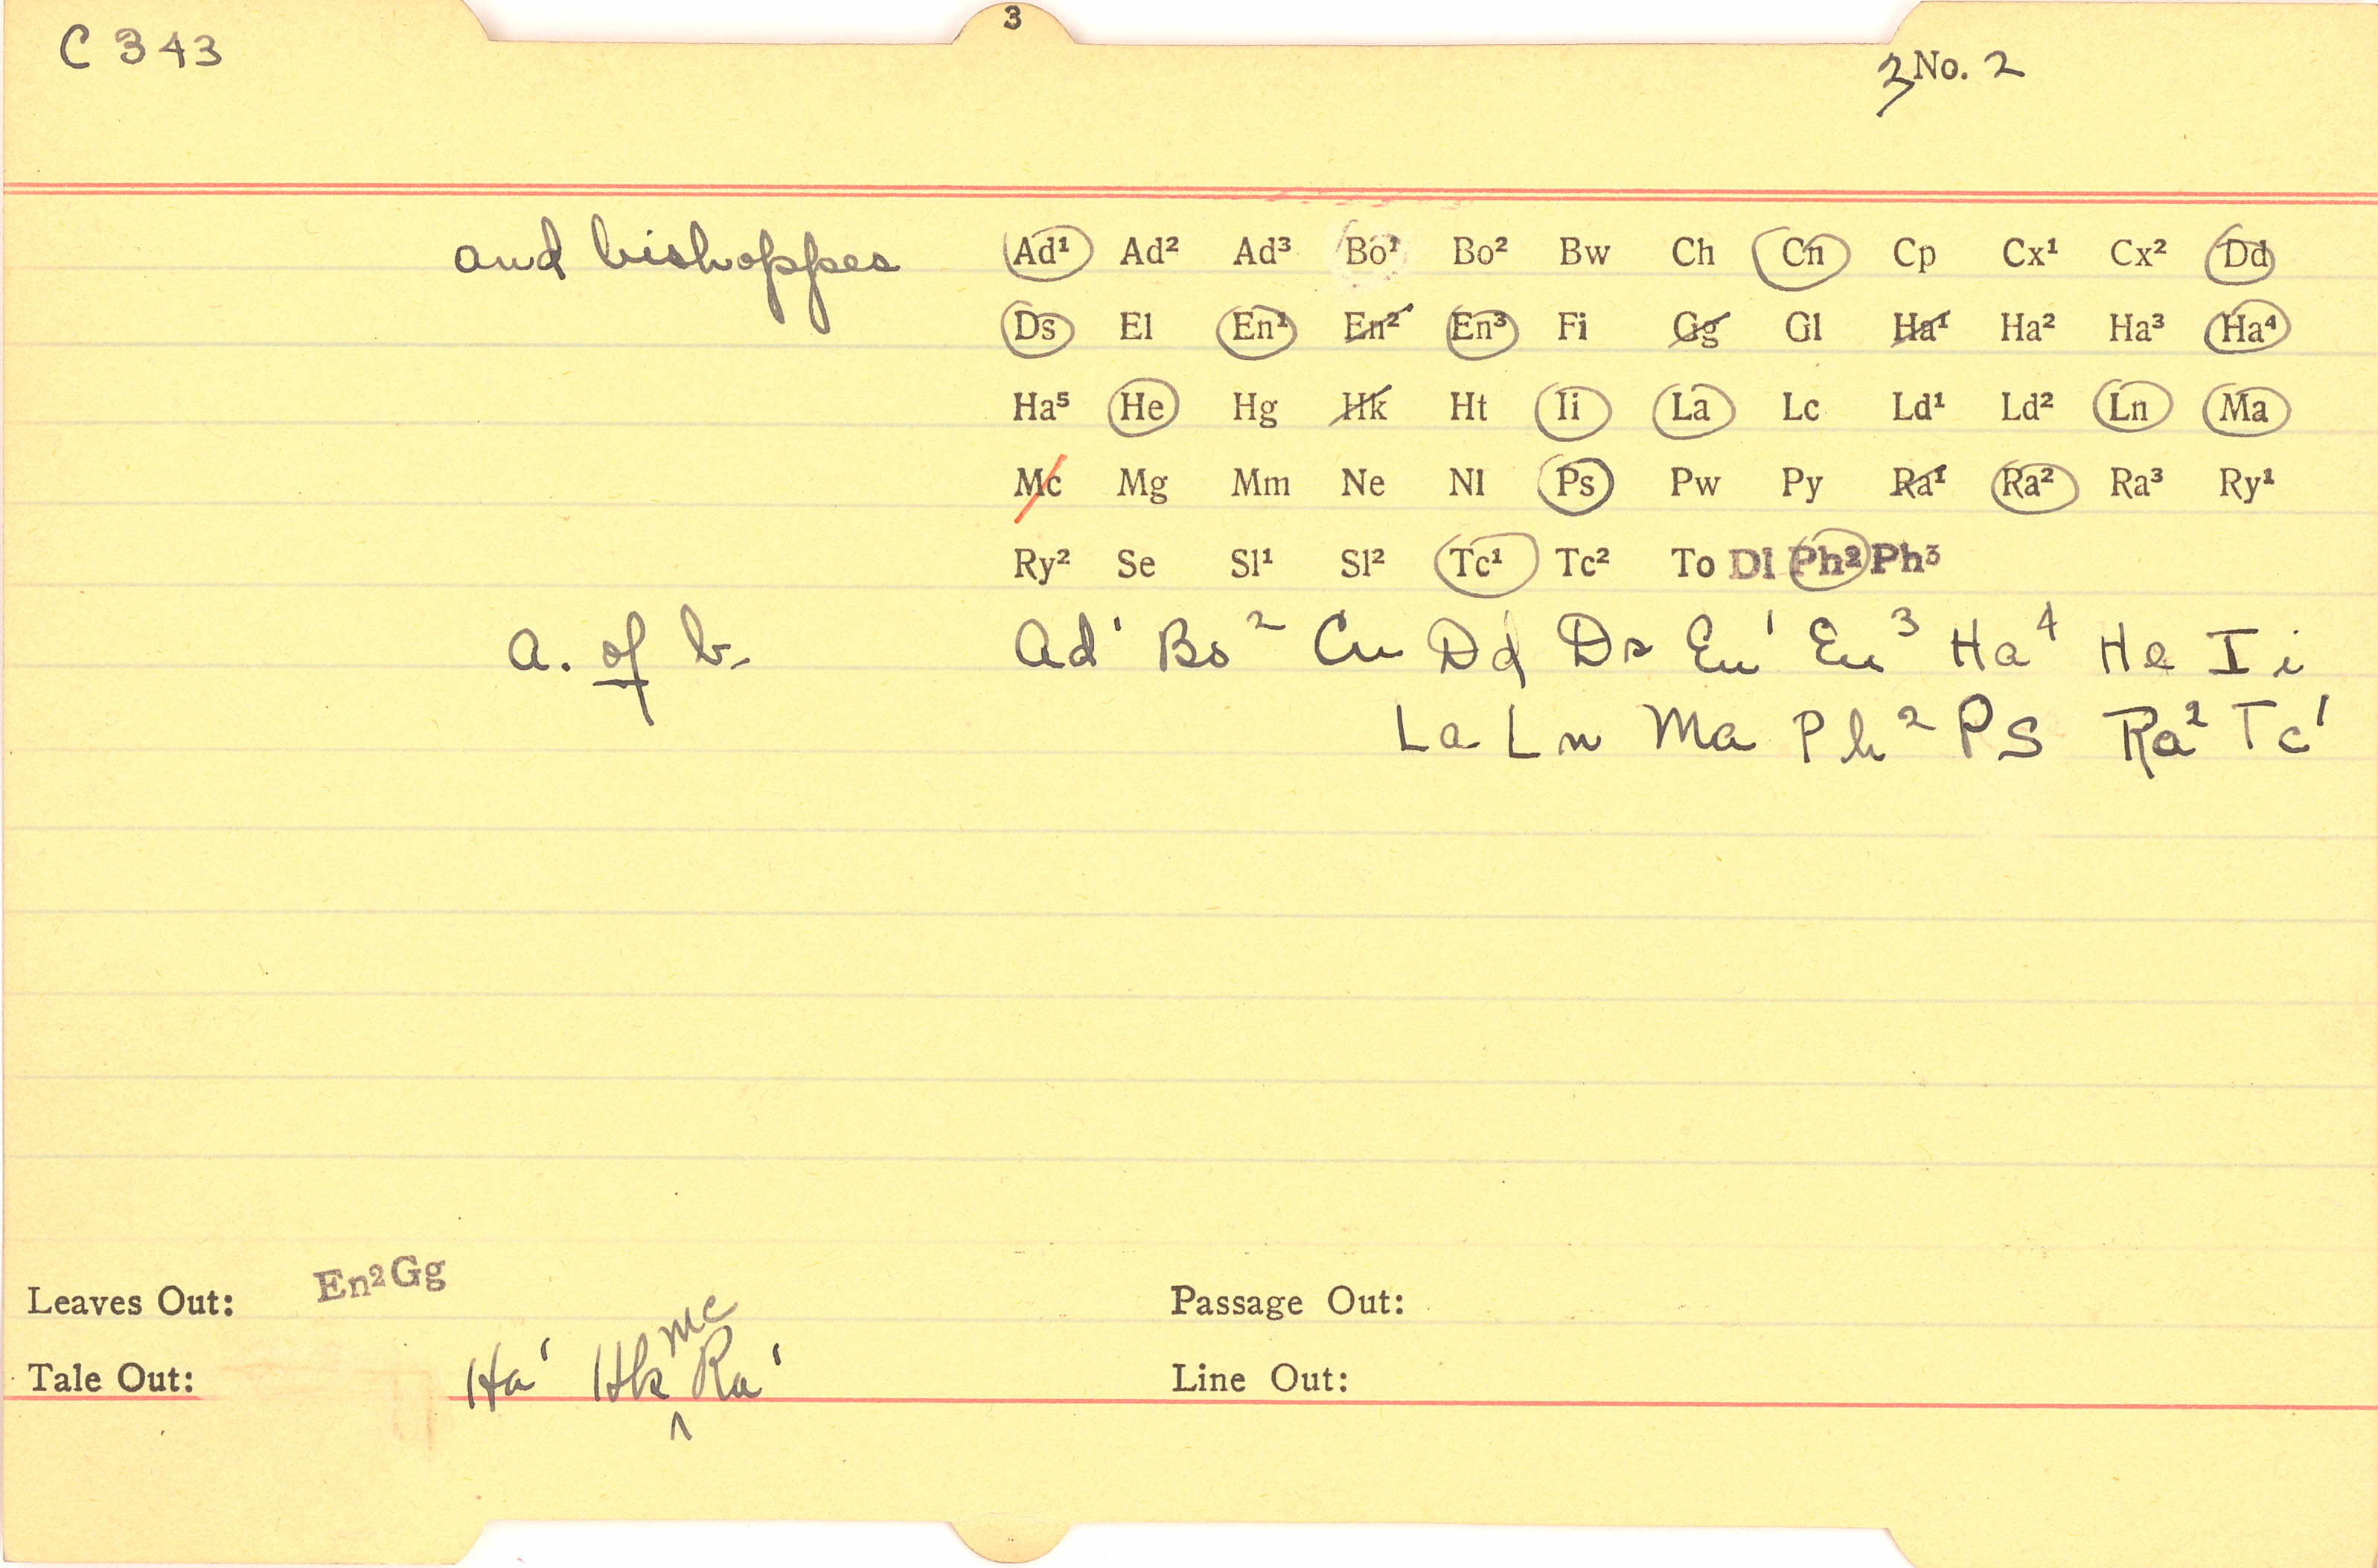 3
C 343
3 No. 2
and bishoppes Ad¹ Ad² Ad³ Bo¹ Bo² Bw Ch Cn Cp Cx¹ Cx² Dd
Ds El En¹ En² En³ Fi Gg Gl Ha¹ Ha² Ha³ Ha⁴
Ha⁵ He Hg Hk Ht Ii La Lc Ld¹ Ld² Ln Ma
Mc Mg Mm Ne Nl Ps Pw Py Ra¹ Ra² Ra³ Ry¹
Ry² Se Sl¹ Sl² Tc¹ Tc² To Dl Ph² Ph³
a. of b. Ad¹ Bo² Cn Dd Ds En¹ En³ Ha⁴ He Ii
La Ln Ma Ph² Ps Ra² Tc¹
Leaves Out: En² Gg Passage Out:
Tale Out: Ha¹ Hk Mc Ra¹ Line Out: